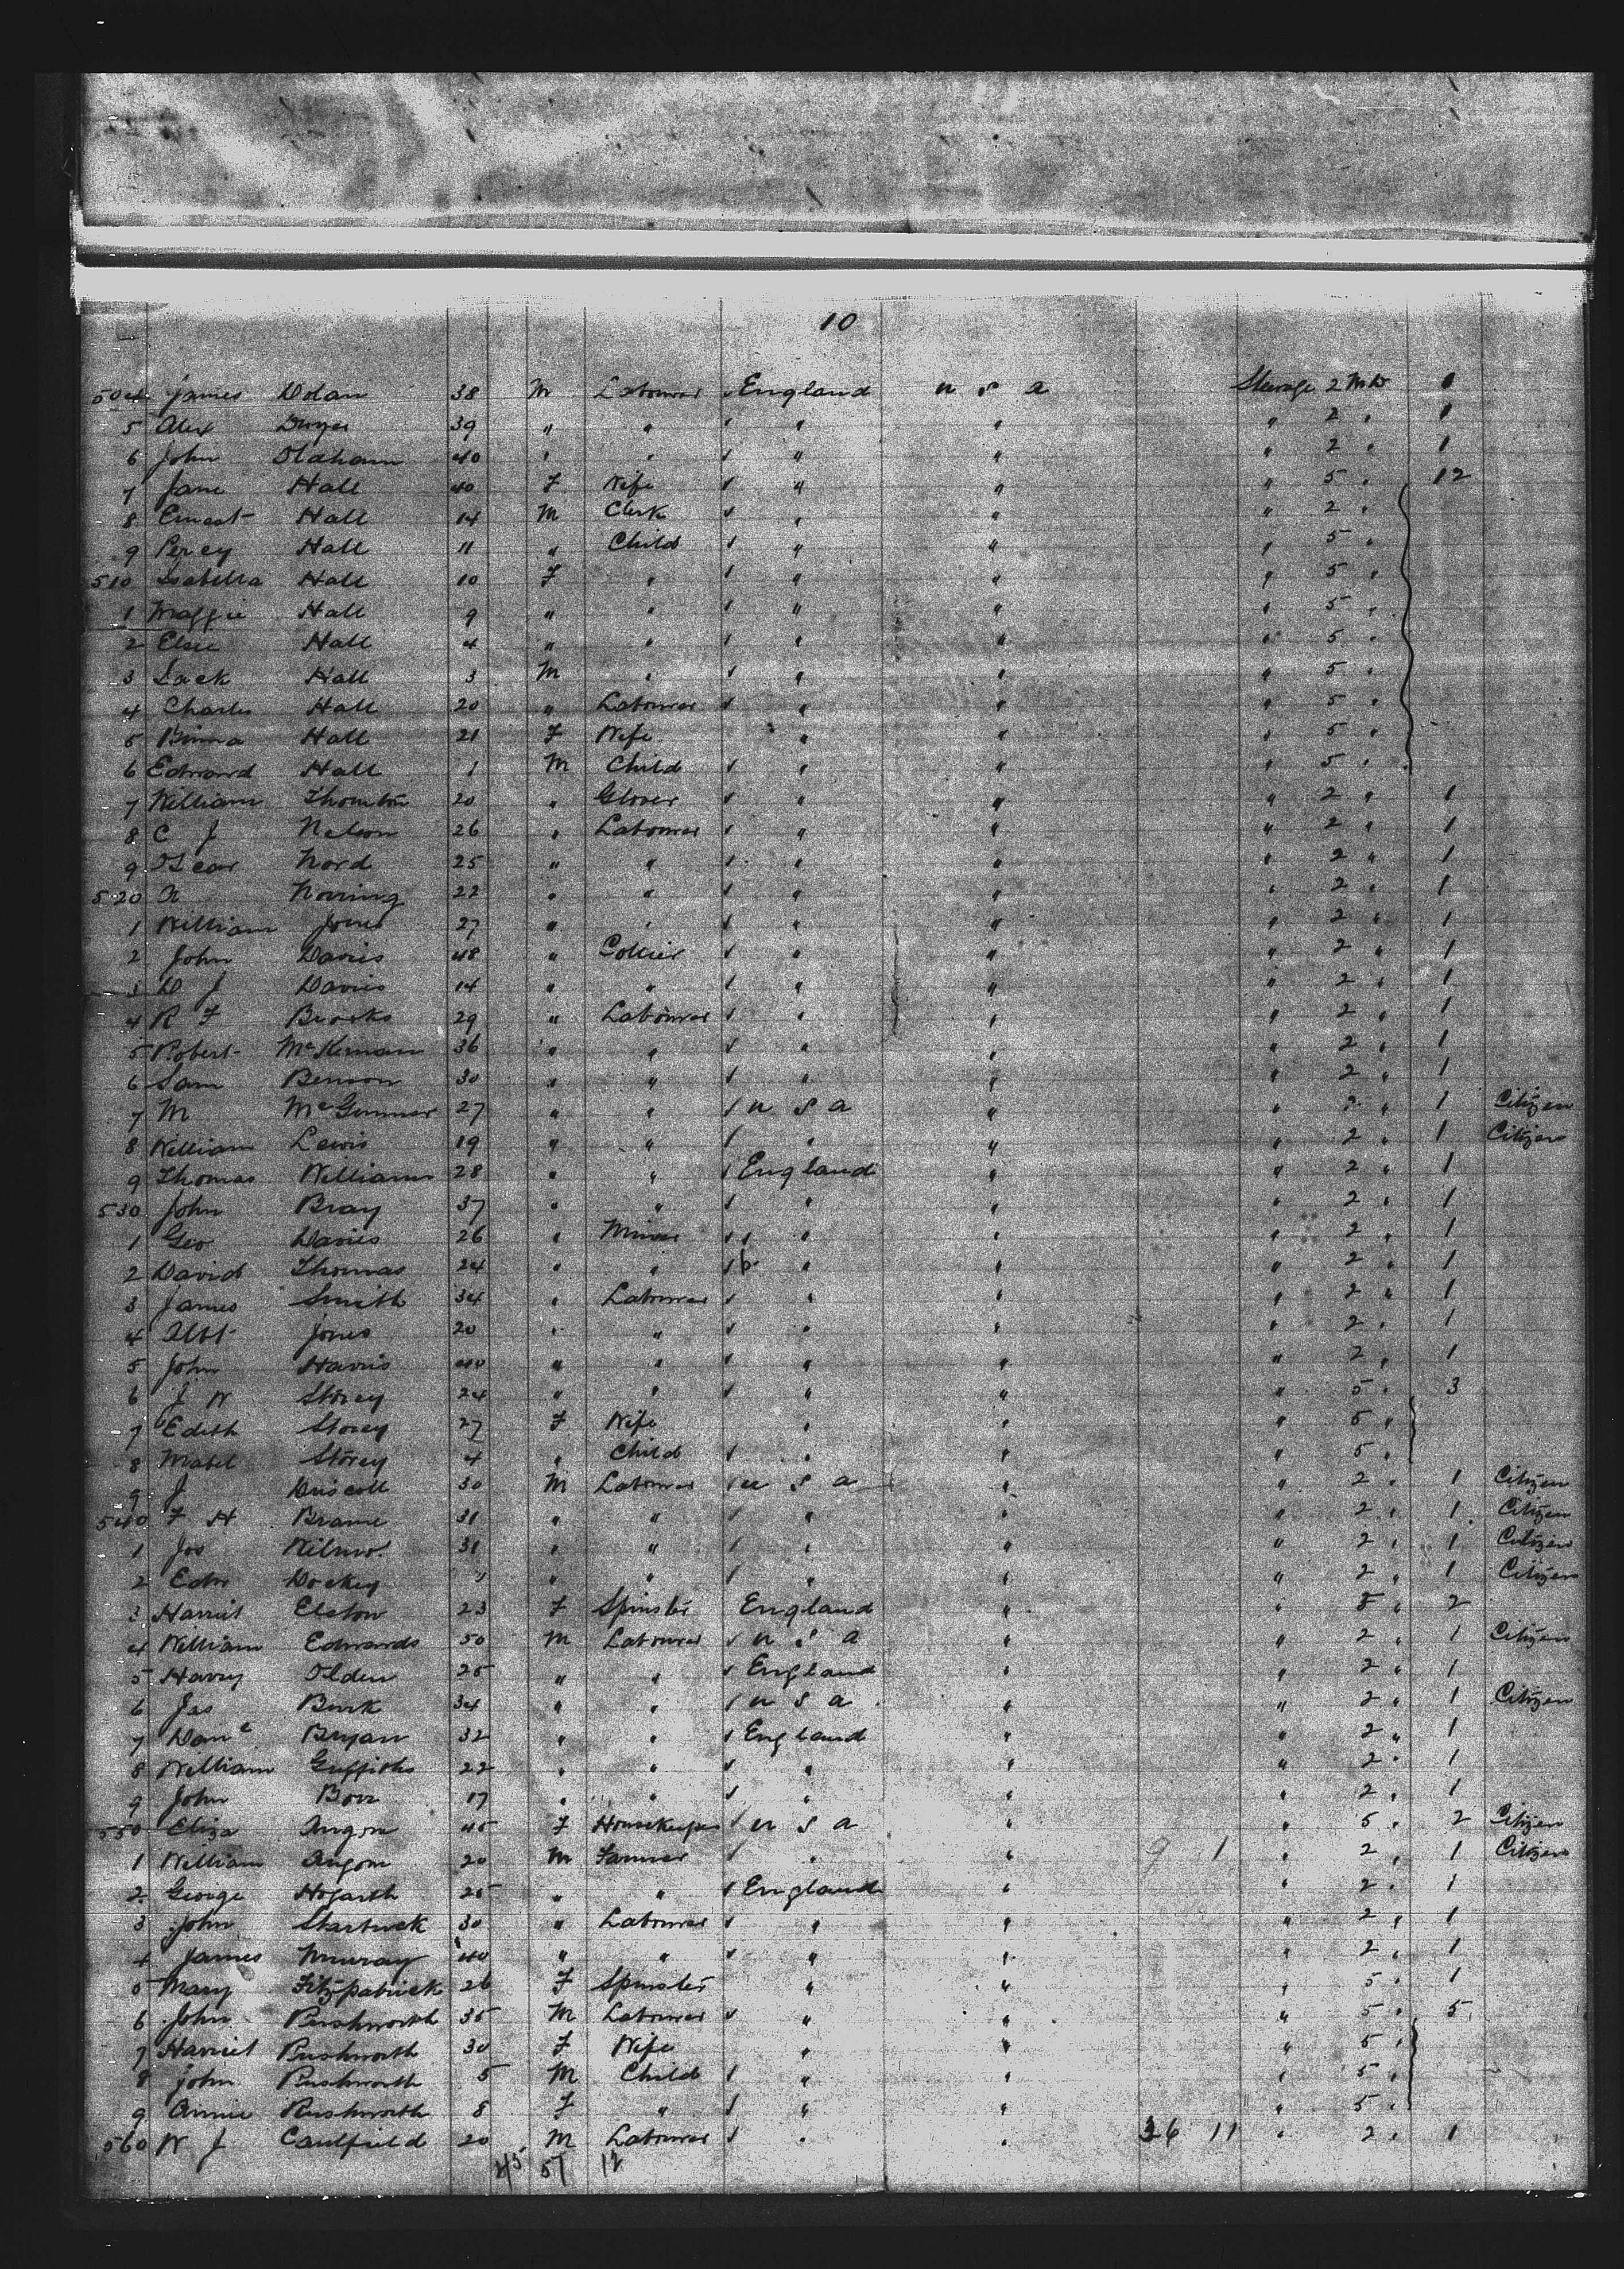 10
504 James Dolan 38 M Labourer England U S A Steerage 2 Mid 1
5 Alex Dwyer 39 " " " " " 2 " 1
6 John Oldham 40 " " " " " 2 " 1
7 Jane Hall 40 F Wife " " " 5 " 12
8 Ernest Hall 14 M Clerk " " " 2 "
9 Percy Hall 11 " Child " " " 5 "
510 Isabella Hall 10 F " " " " 5 "
1 Maggie Hall 9 " " " " " 5 "
2 Elsie Hall 4 " " " " " 5 "
3 Jack Hall 3 M " " " " 5 "
4 Charles Hall 20 " Labourer " " " 5 "
5 Hall 21 F Wife " " " 5 "
6 Edward Hall 1 M Child " " " 5 "
7 William Thornton 20 " Glover " " " 2 " 1
8 C J Nelson 26 " Labourer " " " 2 " 1
9 Oscar Nord 25 " " " " " 2 " 1
520 Norring 22 " " " " " 2 " 1
1 William Jones 27 " " " " " 2 " 1
2 John Davies 48 " Collier " " " 2 " 1
3 D J Davies 14 " " " " " 2 " 1
4 R F Brooks 29 " Labourer " " " 2 " 1
5 Robert McKernan 36 " " " " " 2 " 1
6 Sam Benson 30 " " " " " 2 " 1
7 M 27 " " U S A " " 2 " 1 Citizen
8 William Lewis 19 " " " " " 2 " 1 Citizen
9 Thomas Williams 28 " " England " " 2 " 1
530 John Bray 37 " " " " " 2 " 1
1 Geo Davies 26 " Miner " " " 2 " 1
2 David Thomas 24 " " " " " 2 " 1
3 James Smith 34 " Labourer " " " 2 " 1
4 Albt Jones 20 " " " " " 2 " 1
5 John Harris 40 " " " " " 2 " 1
6 J W Storey 24 " " " " " 5 " 3
7 Edith Storey 27 F Wife " " " 5 "
8 Mabel Storey 4 " Child " " " 5 "
9 J Driscoll 30 M Labourer U S A " " 2 " 1 Citizen
540 F H Brame 31 " " " " " 2 " 1 Citizen
1 Jos 31 " " " " " 2 " 1 Citizen
2 Edw Dockey " " " " " " 2 " 1 Citizen
3 Harriet Elston 23 F Spinster England " " 5 " 2
4 William Edwards 50 M Labourer U S A " " 2 " 1 Citizen
5 Harry Olden 25 " " England " " 2 " 1
6 Jas Burk 34 " " U S A " " 2 " 1 Citizen
7 Danl Bryan 32 " " England " " 2 " 1
8 William Griffiths 22 " " " " " 2 " 1
9 John 17 " " " " " 2 " 1
550 Eliza Angove 45 F Housekeeper U S A " " 5 " 2 Citizen
1 William Angove 20 M Farmer " " 9 1 " 2 " 1 Citizen
2 George Hogarth 25 " " England " " 2 " 1
3 John Starbuck 30 " Labourer " " " 2 " 1
4 James Murray 40 " " " " " 2 " 1
5 Mary Fitzpatrick 26 F Spinster " " " 5 " 1
6 John Rushworth 35 M Labourer " " " 5 " 5
7 Harriet Rushworth 30 F Wife " " " 5 "
8 John Rushworth 5 M Child " " " 5 "
9 Annie Rushworth 8 F " " " " 5 "
560 W J Caulfield 20 M Labourer " " 36 11 " 2 " 1
45 57 12